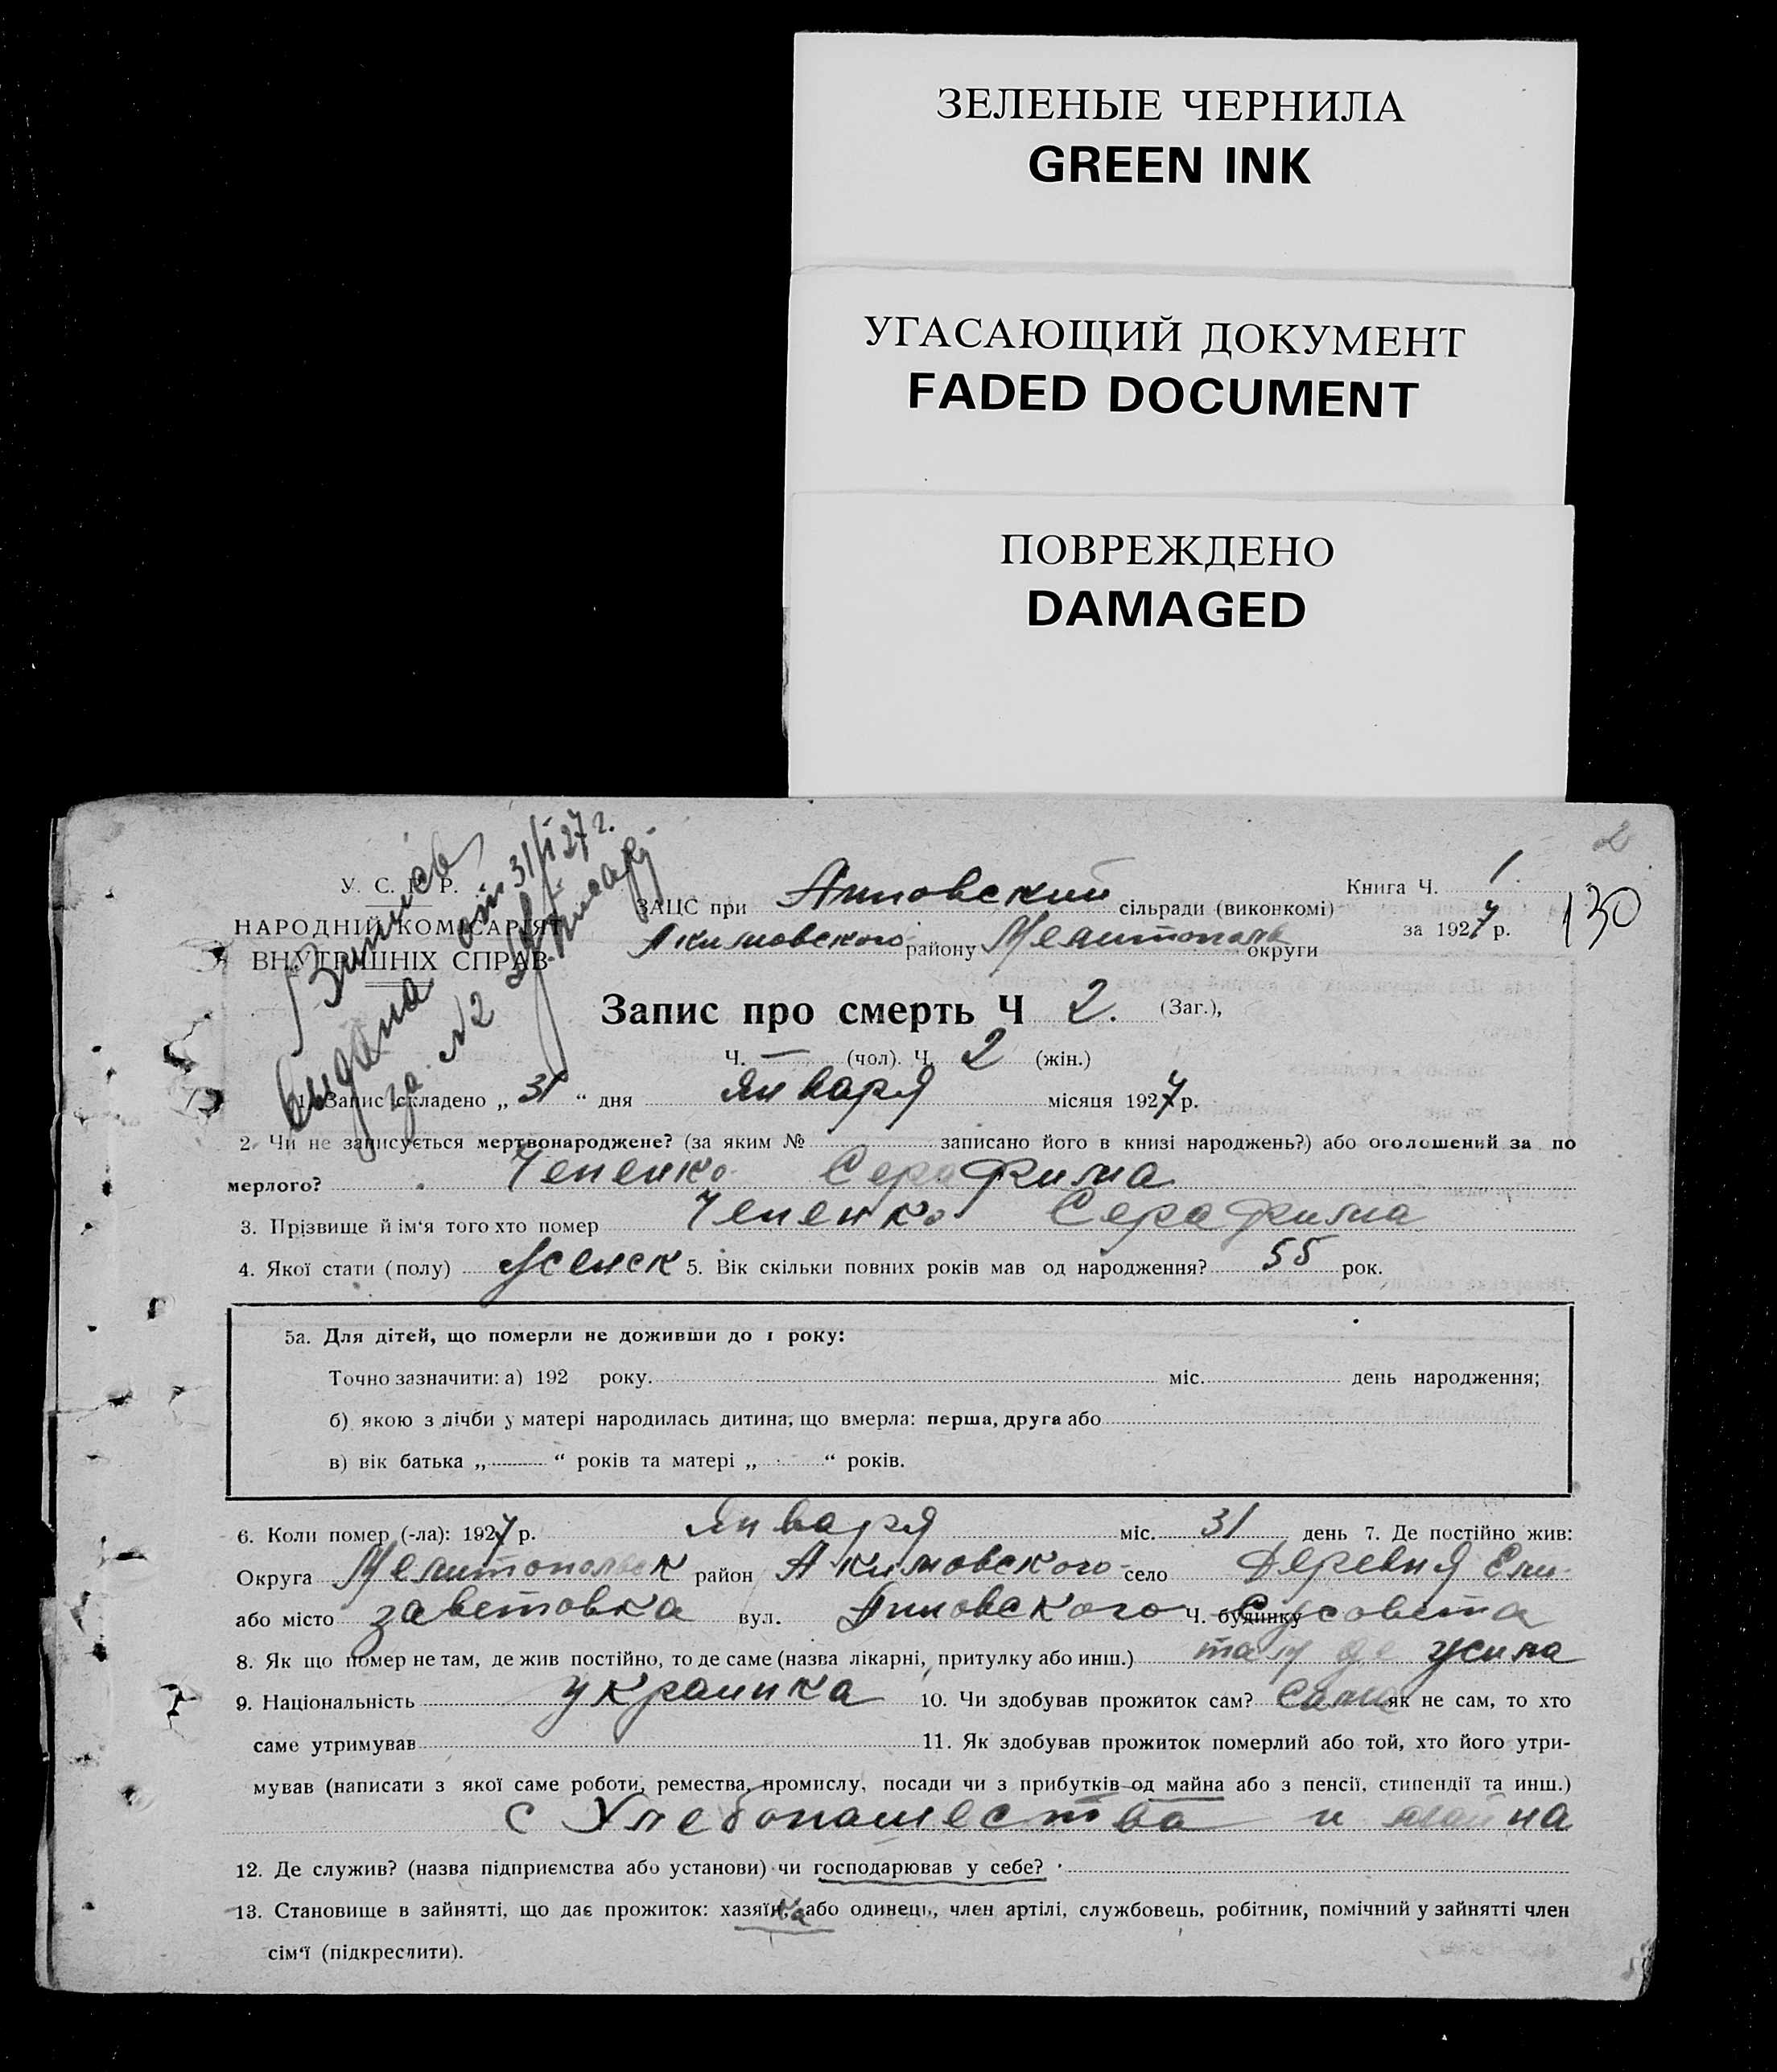 ЗЕЛЕНЫЕ ЧЕРНИЛА
GREEN INK
УГАСАЮЩИЙ ДОКУМЕНТ
FADED DOCUMENT
ПОВРЕЖДЕНО
DAMAGED
2
130
У. С. Р. Р.
НАРОДНІЙ КОМІСАРІЯТ
ВНУТРІШНІХ СПРАВ
Выпись
выдана от 31/I 27 г.
за №2
ЗАЦС при Анновский сільради (виконкомі)
Акимовского району Мелитополь округи
Книга Ч. 1
за 1927 р.
Запис про смерть Ч 2. (Заг.),
Ч. — (чол). Ч. 2 (жін.)
1. Запис складено „ 31 “ дня января місяця 1927 р.
2. Чи не записується мертвонароджене? (за яким № записано його в книзі народжень?) або оголошений за по
мерлого? Чепенко Серафима
3. Прізвище й ім'я того хто помер Чепенко Серафима
4. Якої стати (полу) женск 5. Вік скільки повних років мав од народження? 55 рок.
5а. Для дітей, що померли не доживши до 1 року:
Точно зазначити: а) 192 року. міс. день народження;
б) якою з лічби у матері народилась дитина, що вмерла: перша, друга або
в) вік батька „ “ років та матері „ “ років.
6. Коли помер (-ла): 1927 р. января міс. 31 день 7. Де постійно жив:
Округа Мелитопольск район Акимовского село Деревня Ели-
або місто заветовка вул. Анновского Ч. будинку С/совета
8. Як що помер не там, де жив постійно, то де саме (назва лікарні, притулку або инш.) там де жила
9. Національність украинка 10. Чи здобував прожиток сам? Сама як не сам, то хто
саме утримував 11. Як здобував прожиток померлий або той, хто його утри-
мував (написати з якої саме роботи, ремества, промислу, посади чи з прибутків од майна або з пенсії, стипендії та инш.)
с Хлебопашества и майна
12. Де служив? (назва підприємства або установи) чи господарював у себе?
13. Становище в зайнятті, що дає прожиток: хазяїнка або одинець, член артілі, службовець, робітник, помічний у зайнятті член
сім'ї (підкреслити).